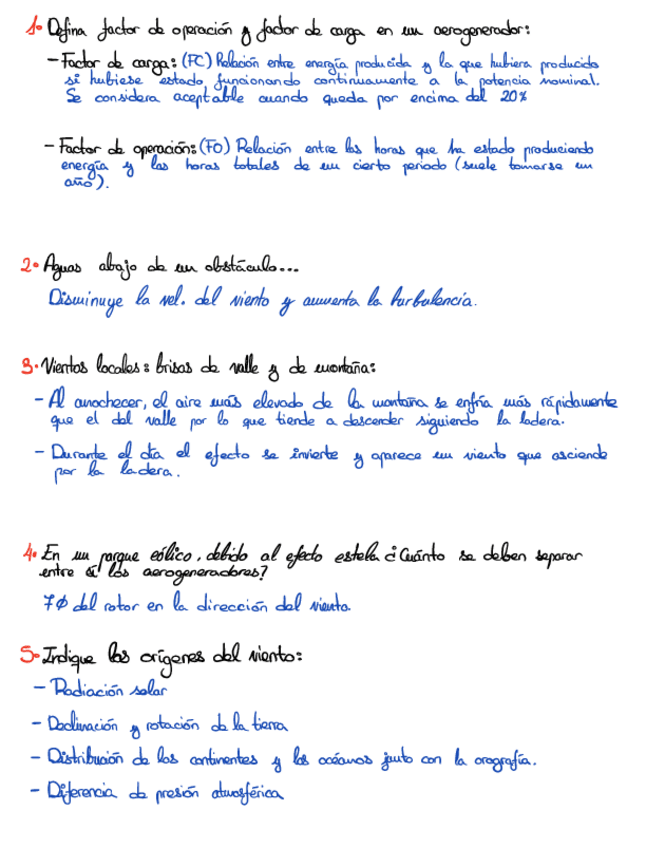 1. Defina factor de operación y factor de carga en un aerogenerador:
- Factor de carga: (FC) Relación entre energía producida y la que hubiera producido
si hubiese estado funcionando continuamente a la potencia nominal.
Se considera aceptable cuando queda por encima del 20%
- Factor de operación: (FO) Relación entre las horas que ha estado produciendo
energía y las horas totales de un cierto periodo (suele tomarse un
año).
2. Aguas abajo de un obstáculo...
Disminuye la vel. del viento y aumenta la turbulencia.
3. Vientos locales: brisas de valle y de montaña:
- Al anochecer, el aire más elevado de la montaña se enfría más rápidamente
que el del valle por lo que tiende a descender siguiendo la ladera.
- Durante el día el efecto se invierte y aparece un viento que asciende
por la ladera.
4. En un parque eólico, debido al efecto estela ¿Cuánto se deben separar
entre sí los aerogeneradores?
7Ø del rotor en la dirección del viento
5. Indique los orígenes del viento:
- Radiación solar
- Declinación y rotación de la tierra
- Distribución de los continentes y los océanos junto con la orografía.
- Diferencia de presión atmosférica